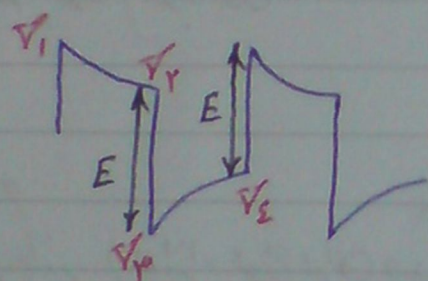 V₁
V٢
E
E
V٣
V٤